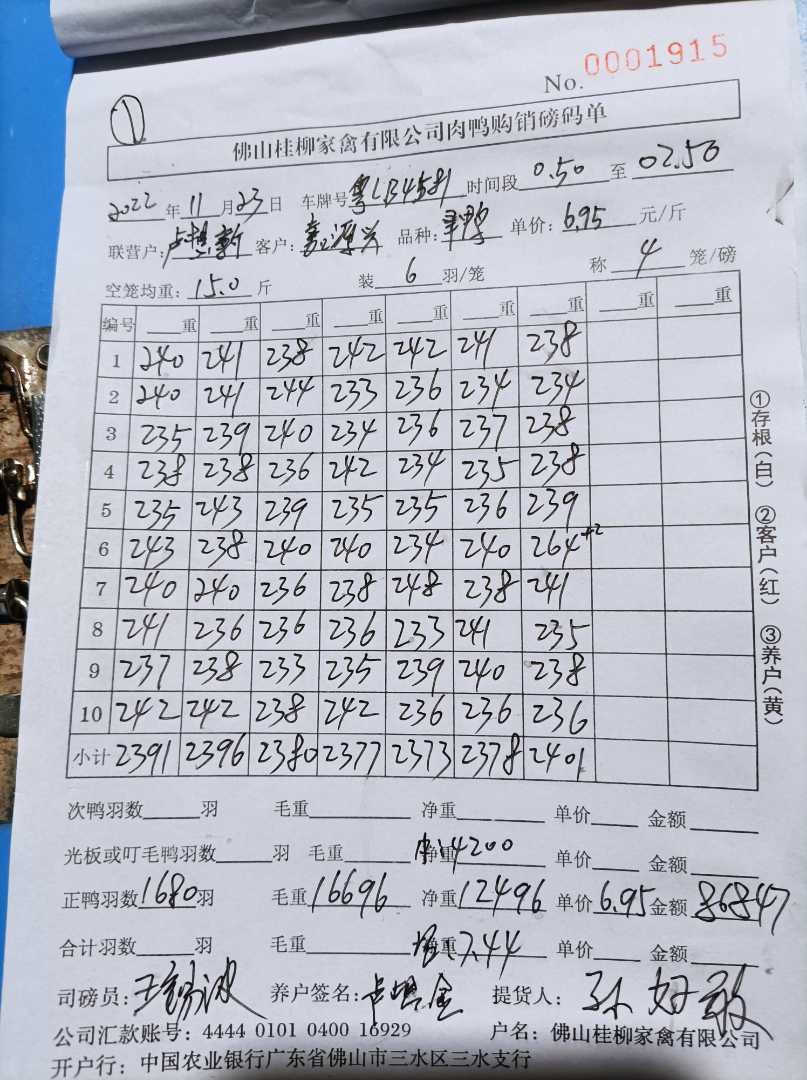 No. 0001915
①
佛山桂柳家禽有限公司肉鸭购销磅码单
2022年11月23日 车牌号粤LB4581 时间段0.50至02.50
联营户: 客户:源兴 品种: 鸭 单价:6.95元/斤
空笼均重:15.0斤 装6羽/笼 称4笼/磅
编号 重 重 重 重 重 重 重 重 重
1 240 241 238 242 242 241 238
2 240 241 244 233 236 234 234
3 235 239 240 234 236 237 238
4 238 238 236 242 234 235 238
5 235 243 239 235 235 236 239
6 243 238 240 240 234 240 264+2
7 240 240 236 238 248 238 241
8 241 236 236 236 233 241 235
9 237 238 233 235 239 240 238
10 242 242 238 242 236 236 236
小计 2391 2396 2380 2377 2373 2378 2401
①存根(白) ②客户(红) ③养户(黄)
次鸭羽数 羽 毛重 净重 单价 金额
光板或叮毛鸭羽数 羽 毛重 净重4200 单价 金额
正鸭羽数1680羽 毛重16696 净重12496 单价6.95 金额86847
合计羽数 羽 毛重 净重7.44 单价 金额
司磅员: 养户签名: 提货人:孙好敢
公司汇款账号:4444 0101 0400 16929 户名:佛山桂柳家禽有限公司
开户行:中国农业银行广东省佛山市三水区三水支行